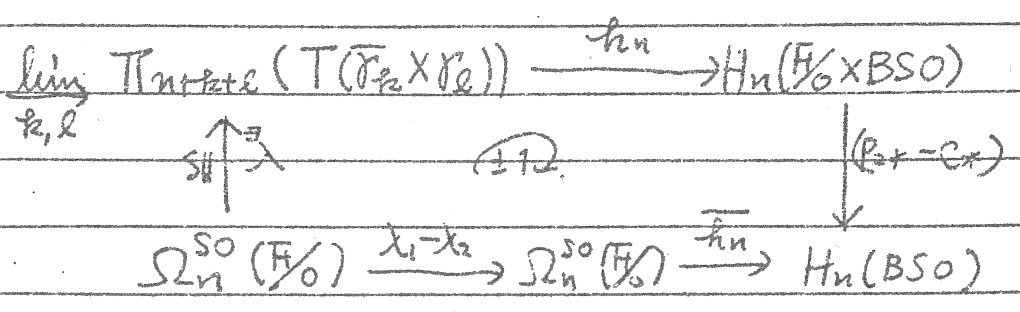 lim π_{n+k+l}(T(γ̄_k×γ_l)) —h_n→ H_n(F/O×BSO)
k,l
≅ ↑ ∃λ ±1 ↓ (p_{2*}-c_*)
Ω_n^{SO}(F/O) —χ_1-χ_2→ Ω_n^{SO}(F/O) —h̄_n→ H_n(BSO)